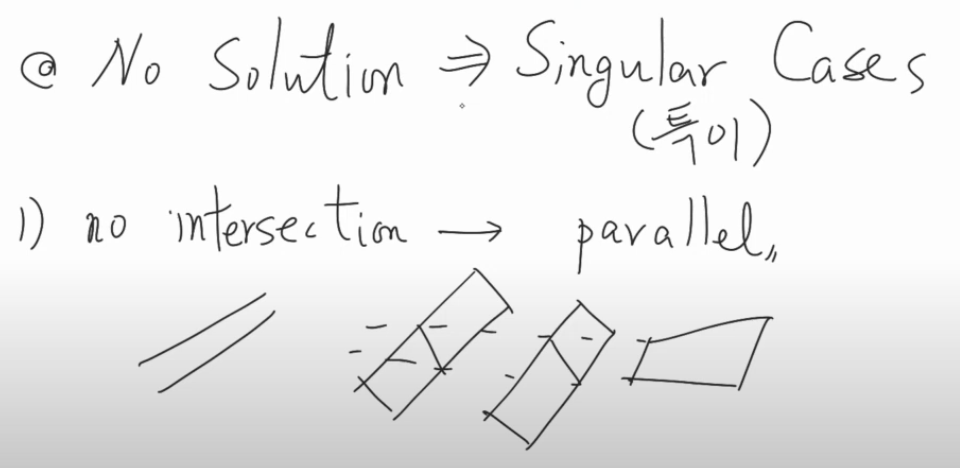 @ No Solution ⇒ Singular Cases
(특이)
1) no intersection → parallel〃